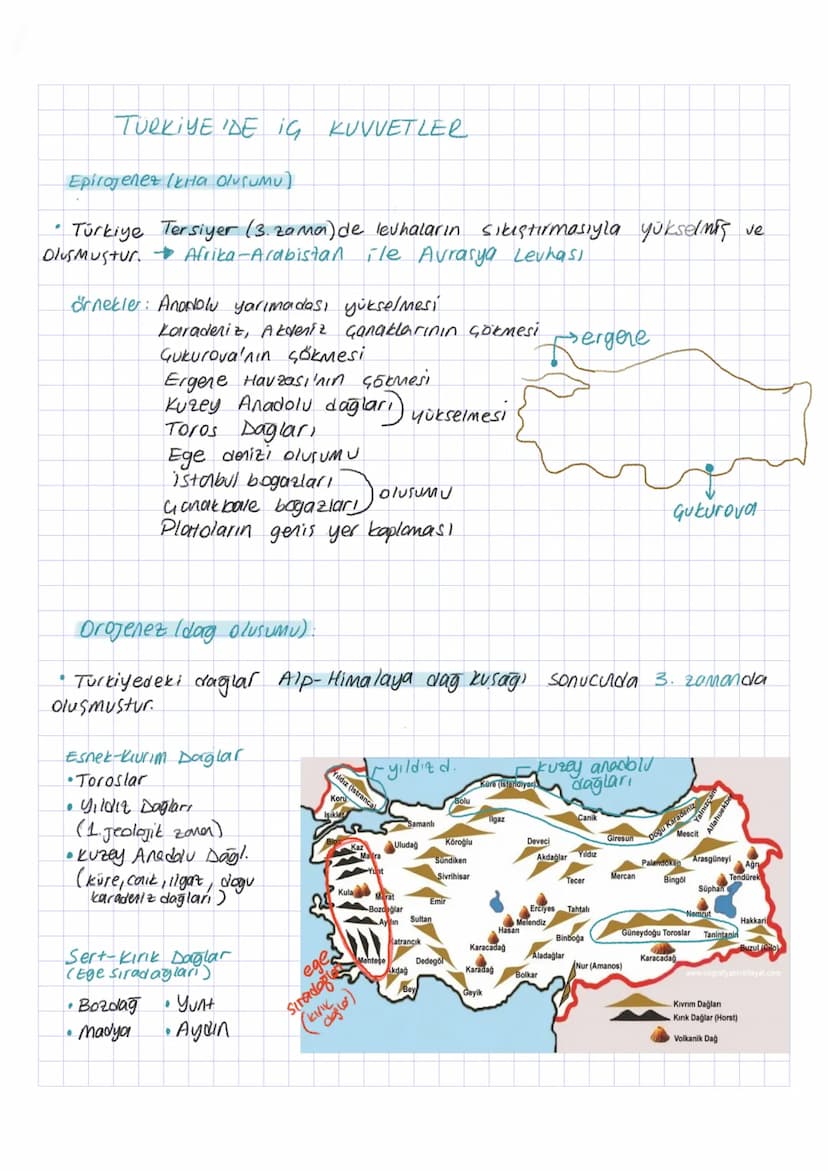 TÜRKİYE'DE İÇ KUVVETLER
Epirojenez (kıta oluşumu)
• Türkiye Tersiyer (3. zaman)de levhaların sıkıştırmasıyla yükselmiş ve
oluşmuştur. → Afrika-Arabistan ile Avrasya Levhası
örnekler: Anadolu yarımadası yükselmesi
Karadeniz, Akdeniz Çanaklarının Çökmesi
Çukurova'nın çökmesi
Ergene Havzası'nın çökmesi
Kuzey Anadolu dağları
Toros Dağları
yükselmesi
Ege denizi oluşumu
istanbul boğazları
Çanakkale boğazları
oluşumu
Platoların geniş yer kaplaması
ergene
Çukurova
Orojenez (dağ oluşumu):
• Türkiyedeki dağlar Alp-Himalaya dağ kuşağı sonucunda 3. zamanda
oluşmuştur.
Esnek-Kıvrım Dağlar
• Toroslar
• Yıldız Dağları
(1. jeolojik zaman)
• Kuzey Anadolu Dağl.
(küre, canik, ılgaz, doğu
karadeniz dağları)
Sert-Kırık Dağlar
(Ege sıradağları)
• Bozdağ • Yunt
• Madya • Aydın
yıldız d.
kuzey anadolu
dağları
Yıldız (Istranca)
Koru
Işıklar
Küre (İsfendiyar)
Bolu
Ilgaz
Canik
Giresun
Doğu Karadeniz
Yalnızçam
Allahuekber
Mescit
Samanlı
Köroğlu
Deveci
Uludağ
Kaz
Madra
Yunt
Sündiken
Sivrihisar
Akdağlar
Yıldız
Tecer
Mercan
Palandöken
Bingöl
Arasgüneyi
Ağrı
Tendürek
Süphan
Nemrut
Kula
Murat
Bozdağlar
Aydın
Menteşe
Emir
Sultan
Katrancık
Dedegöl
Akdağ
Bey
Geyik
Karadağ
Karacadağ
Hasan
Melendiz
Erciyes
Tahtalı
Binboğa
Aladağlar
Bolkar
Nur (Amanos)
Güneydoğu Toroslar
Tanintanin
Hakkari
Buzul (Cilo)
Karacadağ
ege
sıradağlar
(kırık
dağlar)
www.cografyabirhayat.com
Kıvrım Dağları
Kırık Dağlar (Horst)
Volkanik Dağ